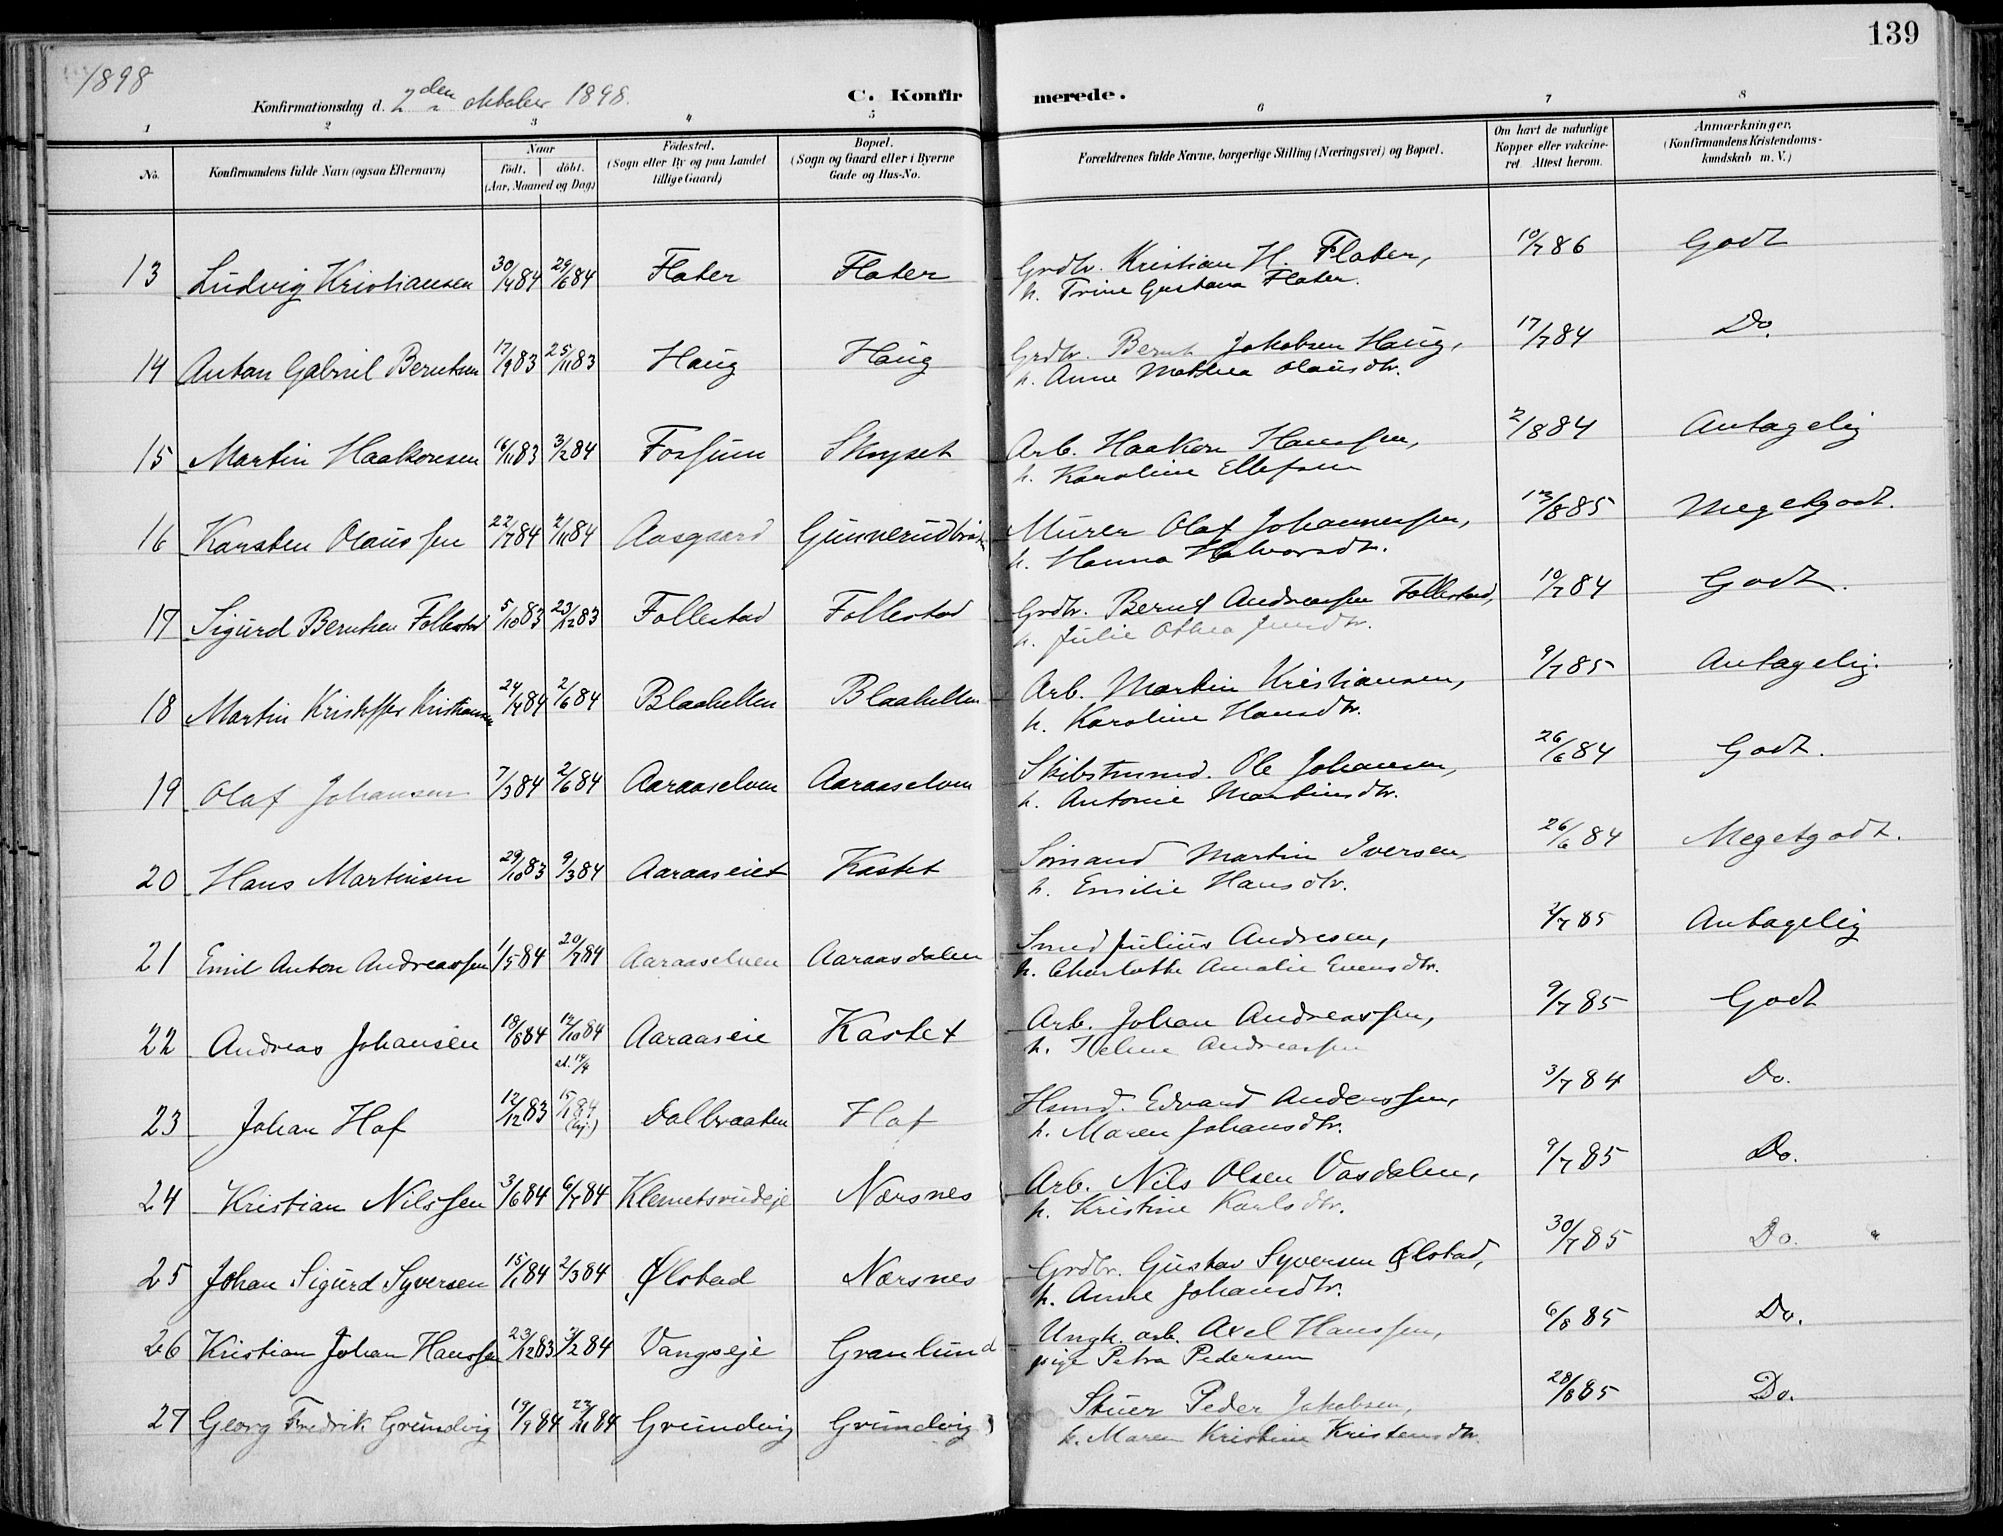 139
1898
Konfirmationsdag d. 2den oktober 1898.
C. Konfirmerede.
1 2 3 4 5 6 7 8
No.
Konfirmandens fulde Navn (ogsaa Efternavn)
Naar
födt. döbt.
(Aar, Maaned og Dag)
Födested.
(Sogn eller By og paa Landet
tillige Gaard)
Bopæl.
(Sogn og Gaard eller i Byerne
Gade og Hus-No.
Forældrenes fulde Navne, borgerlige Stilling (Næringsvei) og Bopæl.
Om havt de naturlige
Kopper eller vakcine-
ret. Attest herom.
Anmærkninger.
(Konfirmandens Kristendoms-
kundskab m. V.)
13 Ludvig Kristiansen 30/4 84 29/6 84 Flater Flater Grdbr. Kristian H. Flater, 10/7 86 Godt
h. Trine Gustava Flater.
14 Anton Gabriel Berntsen 17/9 83 25/11 83 Haug Haug Grdbr. Bernt Jakobsen Haug, 17/7 84 Do.
h. Anne Mathea Olausdtr.
15 Martin Haakonsen 16/11 83 3/2 84 Forsum Skryset Arb. Haakon Hanssen, 2/8 84 Antagelig
h. Karoline Ellefsen
16 Karsten Olaussen 22/7 84 2/11 84 Aasgaard Murer Olaf Johannessen, 13/8 85 Megetgodt.
h. Hanna Halvorsdtr.
17 Sigurd Berntsen Follestad 5/10 83 23/12 83 Follestad Follestad Grdbr. Bernt Andreassen Follestad, 10/7 84 Godt.
h. Julie Othea Jensdtr.
18 Martin Kristoffer Kristiansen 24/4 84 2/6 84 Blaahellen Blaahellen Arb. Martin Kristiansen, 9/7 85 Antagelig.
h. Karoline Hansdtr.
19 Olaf Johansen 7/3 84 2/6 84 Aaraaselven Aaraaselven Skibstmmd. Ole Johansen, 26/6 84 Godt.
h. Antonie Martinsdtr.
20 Hans Martinsen 29/10 83 9/3 84 Aaraaseiet Kastet Sømand Martin Iversen, 26/6 84 Megetgodt.
h. Emilie Hansdtr.
21 Emil Anton Andreassen 1/5 84 20/7 84 Aaraaselven Aaraasdalen Smed Julius Andresen, 2/7 85 Antagelig
h. Charlotte Amalie Evensdtr.
22 Andreas Johansen 18/8 84 12/10 84 Aaraaseie Kastet Arb. Johan Andreassen, 9/7 85 Godt
h. Helene Andreassen
23 Johan Hof 12/12 83 84 Dalbraaten Hof Hsmd. Edvard Anderssen, 3/7 84 Do.
h. Maren Johansdtr.
24 Kristian Nilssen 3/6 84 6/7 84 Klemetsrudeje Nærsnes Arb. Nils Olsen Vasdalen, 9/7 85 Do.
h. Kristine Karlsdtr.
25 Johan Sigurd Syversen 15/1 84 2/3 84 Ølstad Nærsnes Grdbr. Gustav Syversen Ølstad, 30/7 85 Do.
h. Anne Johansdtr.
26 Kristian Johan Hanssen 23/12 83 3/2 84 Vangseje Granlund Ungk. arb. Axel Hanssen, 6/8 85 Do.
pige Petra Pedersen
27 Georg Fredrik Grundvig 19/9 84 23/11 84 Grundvig Grundvig Stuer Peder Jakobsen, 28/8 85 Do.
h. Maren Kristine Kristensdtr.